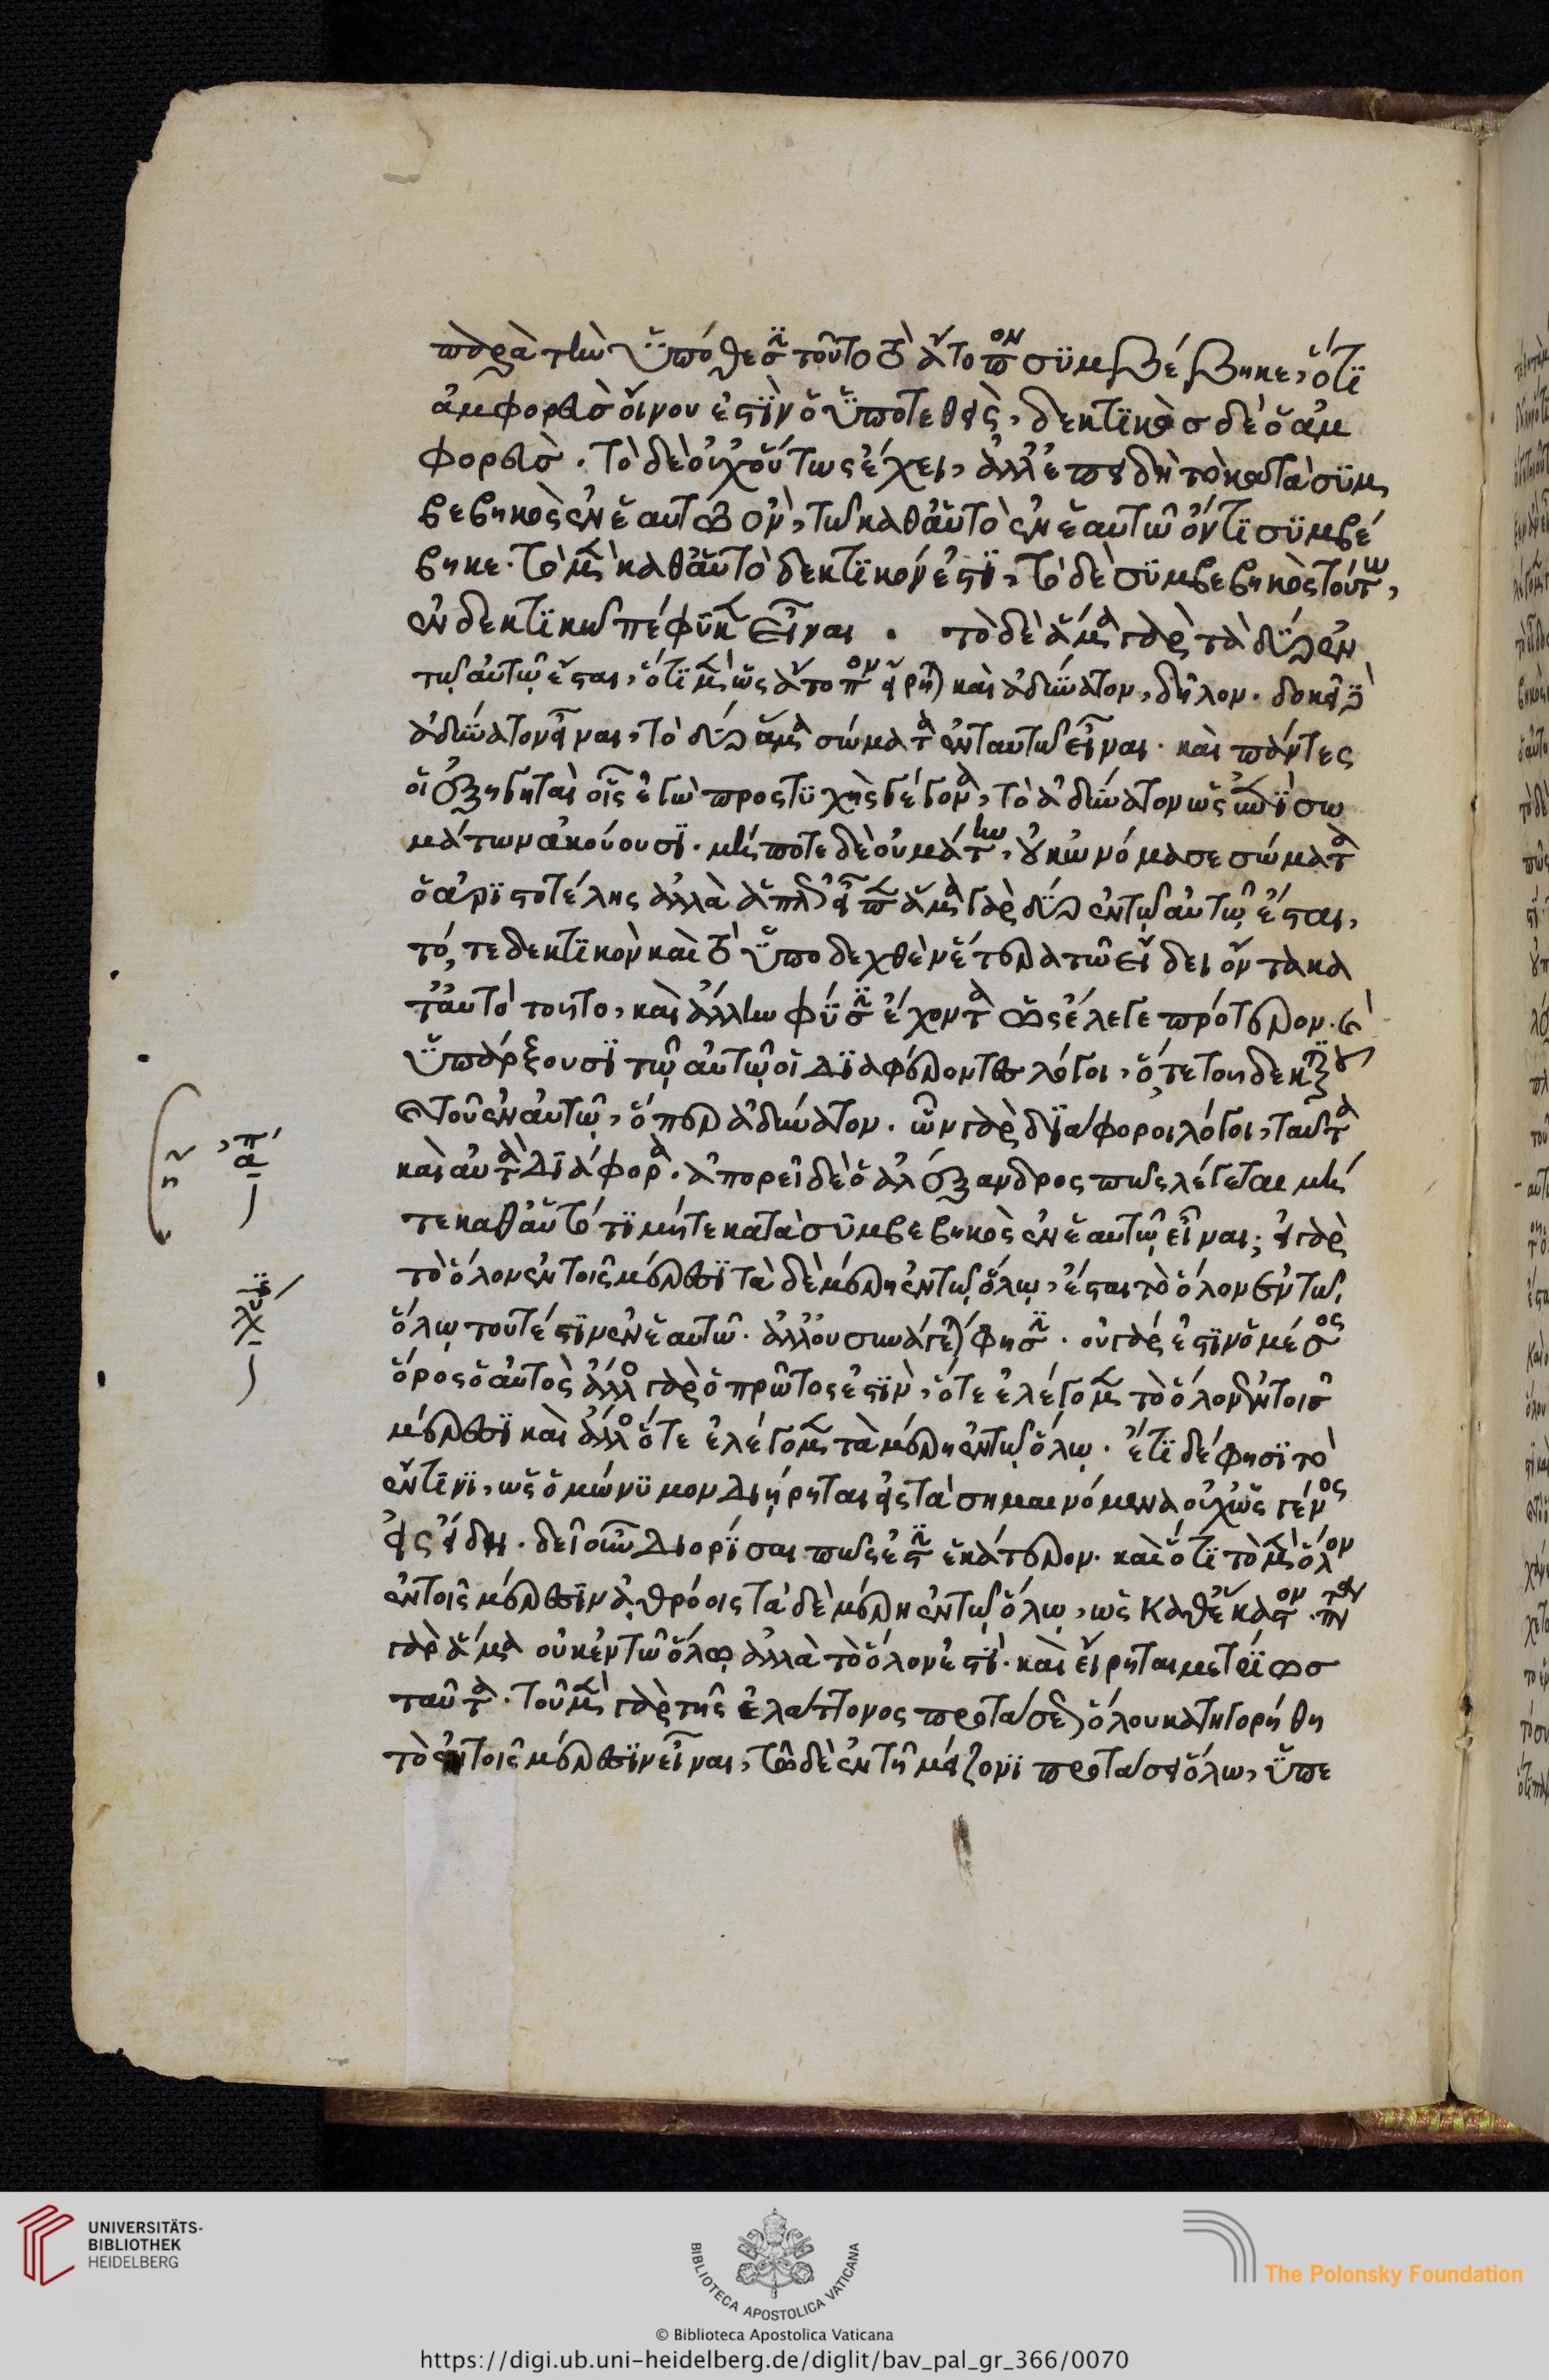 παρὰ τὴν ὑπόθεσιν τοῦτο τὸ ἄτοπον συμβέβηκε, ὅτι
ἀμφορεὺς οἴνου ἐστὶν ὁ ὑποτεθεὶς, δεκτικὸς δὲ ὁ ἀμ
φορεὺς. τὸ δὲ οὐχ οὕτως ἔχει, ἀλλ' ἐπειδὴ τὸ κατὰ συμ
βεβηκὸς ἐν ἑαυτῷ ὂν, τῷ καθ' αὑτὸ ἐν ἑαυτῷ ὄντι συμβέ
βηκε. τὸ μὲν καθ' αὑτὸ δεκτικόν ἐστι, τὸ δὲ συμβεβηκὸς τούτω,
ἐν δεκτικῷ πέφυκεν εἶναι. τὸ δὲ ἅμα γὰρ τὰ δύο ἐν
τῷ αὐτῷ ἔσται, ὅτι μὲν ὡς ἄτοπον εἴρηται καὶ ἀδύνατον, δῆλον. δοκεῖ δὲ
ἀδύνατον εἶναι, τὸ δύο ἅμα σώματα ἐν ταυτῷ εἶναι. καὶ πάντες
οἱ ἐξηγηταὶ οἷς ἐγὼ προστυχὴς γέγονα, τὸ ἀδύνατον ὡς ἐπὶ σω
μάτων ἀκούουσι. μήποτε δὲ οὐ μάτην, οὐκ ὠνόμασε σώματα
ὁ ἀριστοτέλης ἀλλὰ ἁπλῶς εἶπεν ἅμα γὰρ δύο ἐν τῷ αὐτῷ ἔσται,
τό, τε δεκτικὸν καὶ τὸ ὑποδεχθὲν ἕτερα τῷ εἴδει ὄντα κα
τ' αὐτὸ τοῦτο, καὶ ἄλλην φύσιν ἔχοντα ὡς ἔλεγε πρότερον. καὶ
ὑπάρξουσι τῷ αὐτῷ οἱ διαφέροντες λόγοι, ὅ, τε τοῦ δεκτικοῦ
καὶ τοῦ ἐν αὐτῷ, ὅπερ ἀδύνατον. ὧν γὰρ διάφοροι λόγοι, ταῦτα
καὶ αὐτὰ διάφορα. ἀπορεῖ δὲ ὁ ἀλέξανδρος πῶς λέγεται μή
τε καθ' αὑτό τι μήτε κατὰ συμβεβηκὸς ἐν ἑαυτῷ εἶναι; εἰ γὰρ
τὸ ὅλον ἐν τοῖς μέρεσι τὰ δὲ μέρη ἐν τῷ ὅλῳ, ἔσται τὸ ὅλον ἐν τῷ
ὅλῳ τουτέστιν ἐν ἑαυτῷ. ἀλλ' οὐ συνάγεται φησιν. οὐ γάρ ἐστιν ὁ μέσος
ὅρος ὁ αὐτὸς ἄλλο γὰρ ὁ πρῶτος ἐστὶν, ὅτε ἐλέγομεν τὸ ὅλον ἐν τοῖς
μέρεσι καὶ ἄλλο ὅτε ἐλέγομεν τὰ μέρη ἐν τῷ ὅλῳ. ἔτι δέ φησι τὸ
ἔν τινι, ὡς ὁμώνυμον διῄρηται εἰς τὰ σημαινόμενα οὐχ ὡς γένος
εἰς εἴδη. δεῖ οὖν διορίσαι πῶς ἐστιν ἑκάτερον. καὶ ὅτι τὸ μὲν ὅλον
ἐν τοῖς μέρεσιν ἀθρόοις τὰ δὲ μέρη ἐν τῷ ὅλῳ, ὡς καθ' ἕκαστον. πάντα
γὰρ ἅμα οὐκ ἐν τῷ ὅλῳ ἀλλὰ τὸ ὅλον ἐστὶ. καὶ εἴρηται μετρίως
ταῦτα. τοῦ μὲν γὰρ τῆς ἐλάττονος προτάσεως ὅλου κατηγορήθη
τὸ ἐν τοῖς μέρεσιν εἶναι, τῷ δὲ ἐν τῇ μείζονι προτάσει ὅλω, ὑπε
UNIVERSITÄTS-
BIBLIOTHEK
HEIDELBERG
BIBLIOTECA APOSTOLICA VATICANA
The Polonsky Foundation
© Biblioteca Apostolica Vaticana
https://digi.ub.uni-heidelberg.de/diglit/bav_pal_gr_366/0070